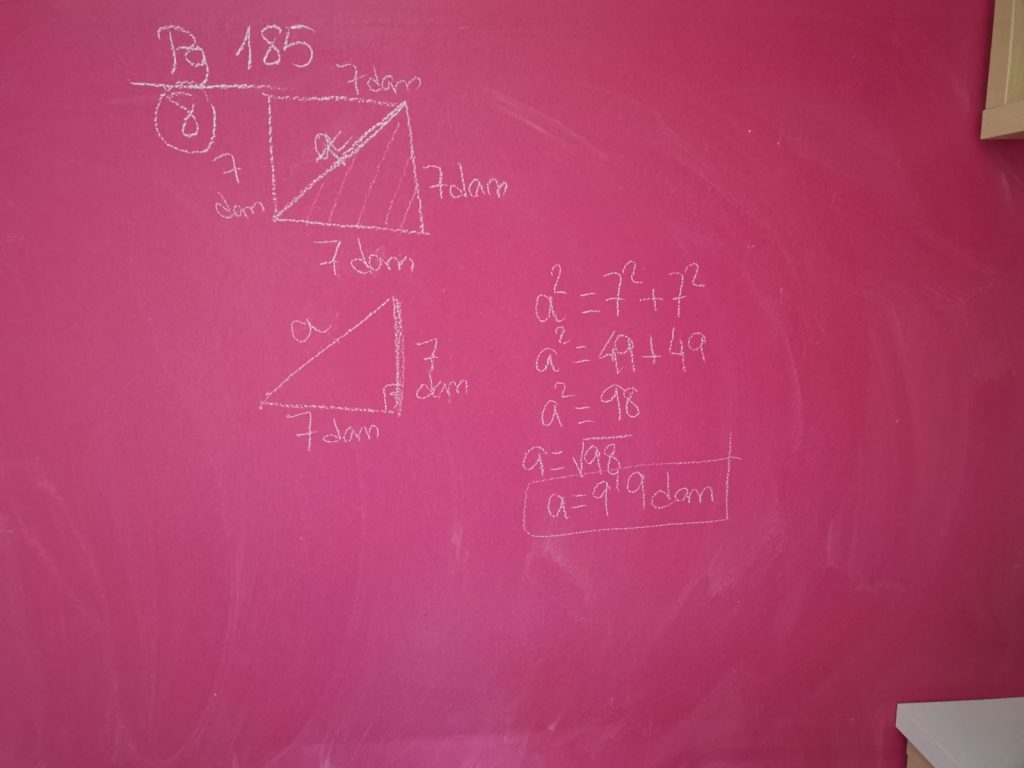 Pg 185
8
7dam
a
7
dam
7dam
7dam
a
7
dam
7dam
a² = 7² + 7²
a² = 49 + 49
a² = 98
a = √98
a = 9'9 dam